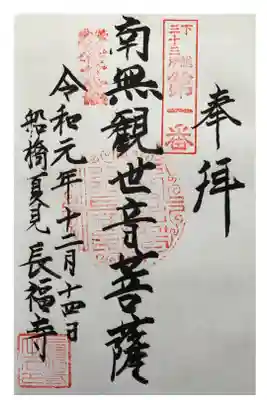 奉拝
三十三所
第一番
南無観世音菩薩
令和元年十二月十四日
船橋夏見 長福寺